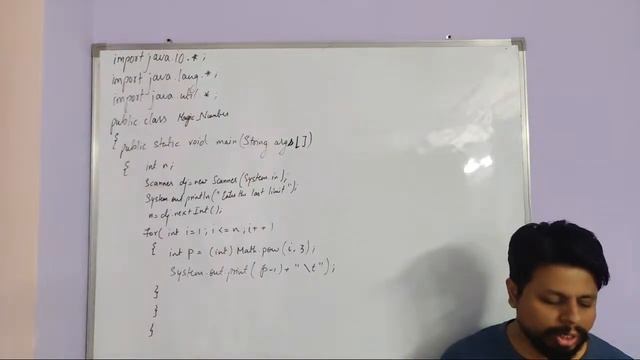 import java.io.*;
import java.lang.*;
import java.util.*;
public class Magic_Number
{ public static void main(String args[])
{ int n;
Scanner dj=new Scanner(System.in);
System.out.println("Enter the last limit");
n=dj.nextInt();
For( int i=1; i<=n; i++)
{ int p = (int) Math.pow(i,3);
System.out.print( (p-1)+ "\t");
}
}
}